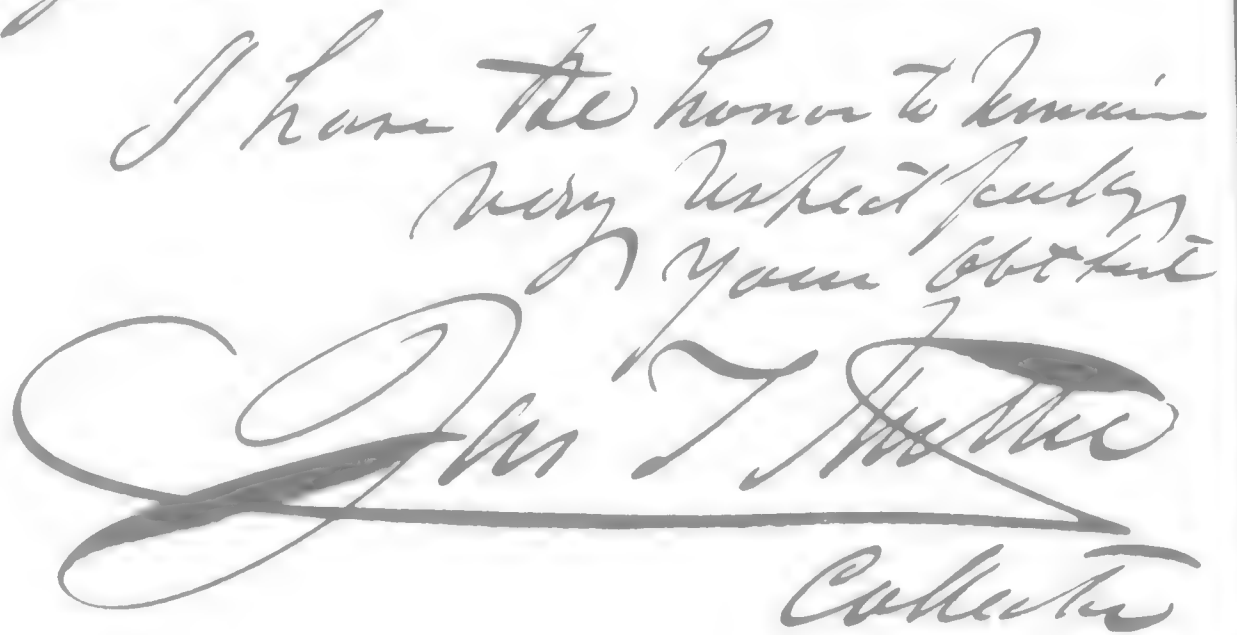 I have the honor to remain
very respectfully
Your obt servt
Jas T
Collector